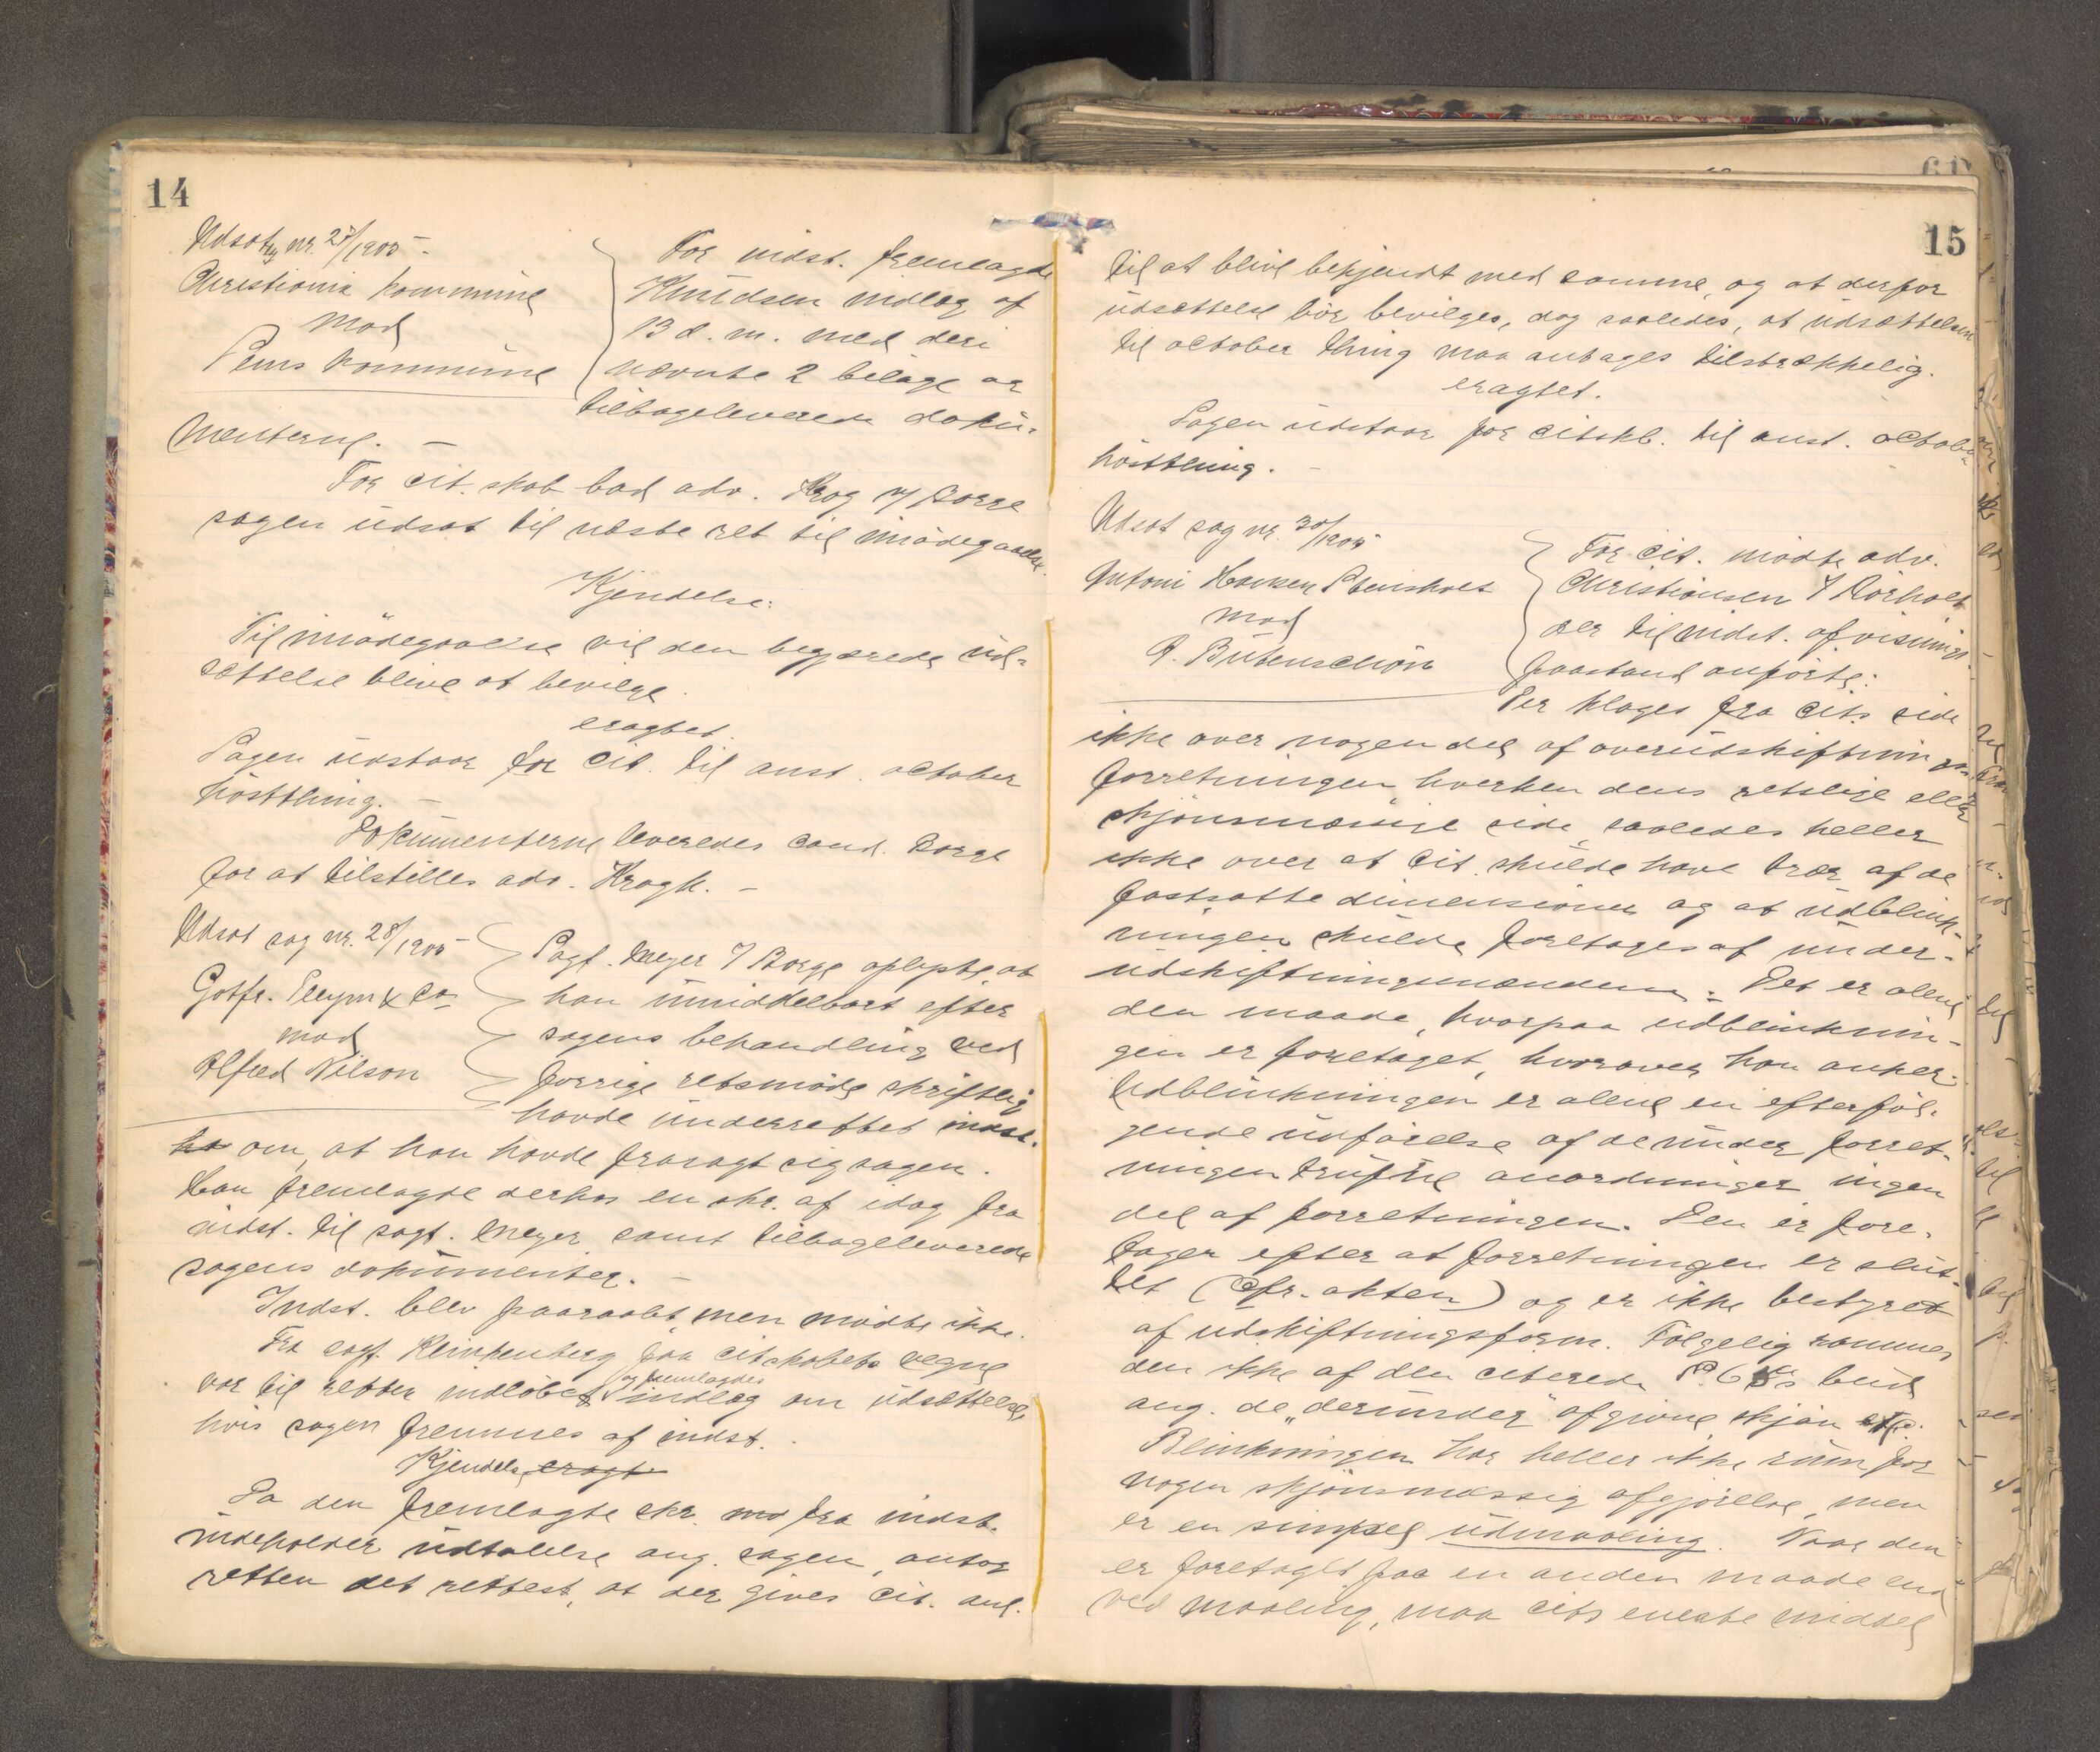 14
Udsat sag nr. 27/1905 -
Christiania kommune
mod
Lens kommune
For indst. fremlagde
Knudsen indlæg af
13 d. m. med deri
nævnte 2 bilage og
tilbageleverede doku-
menterne. -
For cit.skab bad adv. Krog v/ Borge
sagen udsat til næste ret til imødegaaelse.
Kjendelse:
Til imødegaaelse vil den begjærede ud-
sættelse blive at bevilge.
eragtet.
Sagen udstaar for cit. til anst. october
høstthing. -
Dokumenterne leveredes cand. Borge
for at tilstilles adv. Krogh. -
Udsat sag nr. 28/1905 -
Gotfr. & Co
mod
Alfred Nilson
Sagf. Meyer v/ Borge oplyste, at
han umiddelbart efter
sagens behandling ved
forrige retsmøde skriftlig
havde underrettet indst.
om, at han havde frasagt sig sagen.
Han fremlagde derhos en skr. af idag fra
indst. til sagf. Meyer samt tilbageleverede
sagens dokumenter. -
Indst. blev paaraabt, men mødte ikke.
Fra sagf. Klinkenberg paa citskabets vegne
var til retten indløbet og fremlagdes indlæg om udsættelse,
hvis sagen fremmes af indst.
Kjendelse eragt
Da den fremlagte skr. fra indst.
indeholder udtalelse ang. sagen, antog
retten det rettest, at der gives cit. anl.
15
til at blive bekjendt med samme, og at derfor
udsættelse bør bevilges, dog saaledes, at udsættelsen
til october thing maa antages tilstrækkelig.
eragtet.
Sagen udstaar for citskb. til anst. october
høstthing. -
Udsat sag nr. 30/1905
Antoni Hansen Stensholt
mod
A. Bütenschön
For cit. mødte adv.
Christiansen v/ Rörholt
der til indst. afvisnings-
paastand anførte:
Der klages fra cits side
ikke over nogen del af overudskiftnings-
forretningen, hverken dens retslige eller
skjønsmæssige side, saaledes heller
ikke over at cit. skulde have trær af de
fastsatte dimensioner og at udblink-
ningen skulde foretages af under-
udskiftningsmændene. Det er alene
den maade, hvorpaa udblinknin-
gen er foretaget, hvorover han anker.
Udblinkningen er alene en efterføl-
gende udførelse af de under forret-
ningen trufne anordninger ingen
del af forretningen. Den er fore-
tagen efter at forretningen er slut-
tet (Cfr. akten) og er ikke bestyret
af udskiftningsform. Følgelig rammes
den ikke af den citerede bud
ang. de "derunder" afgivne skjøn etc.
Blinkningen har heller ikke rum for
nogen skjønsmæssig afgjørelse, men
er en simpel udmaaling. Naar den
er foretaget paa en anden maade end
ved maaling, maa cits eneste middel